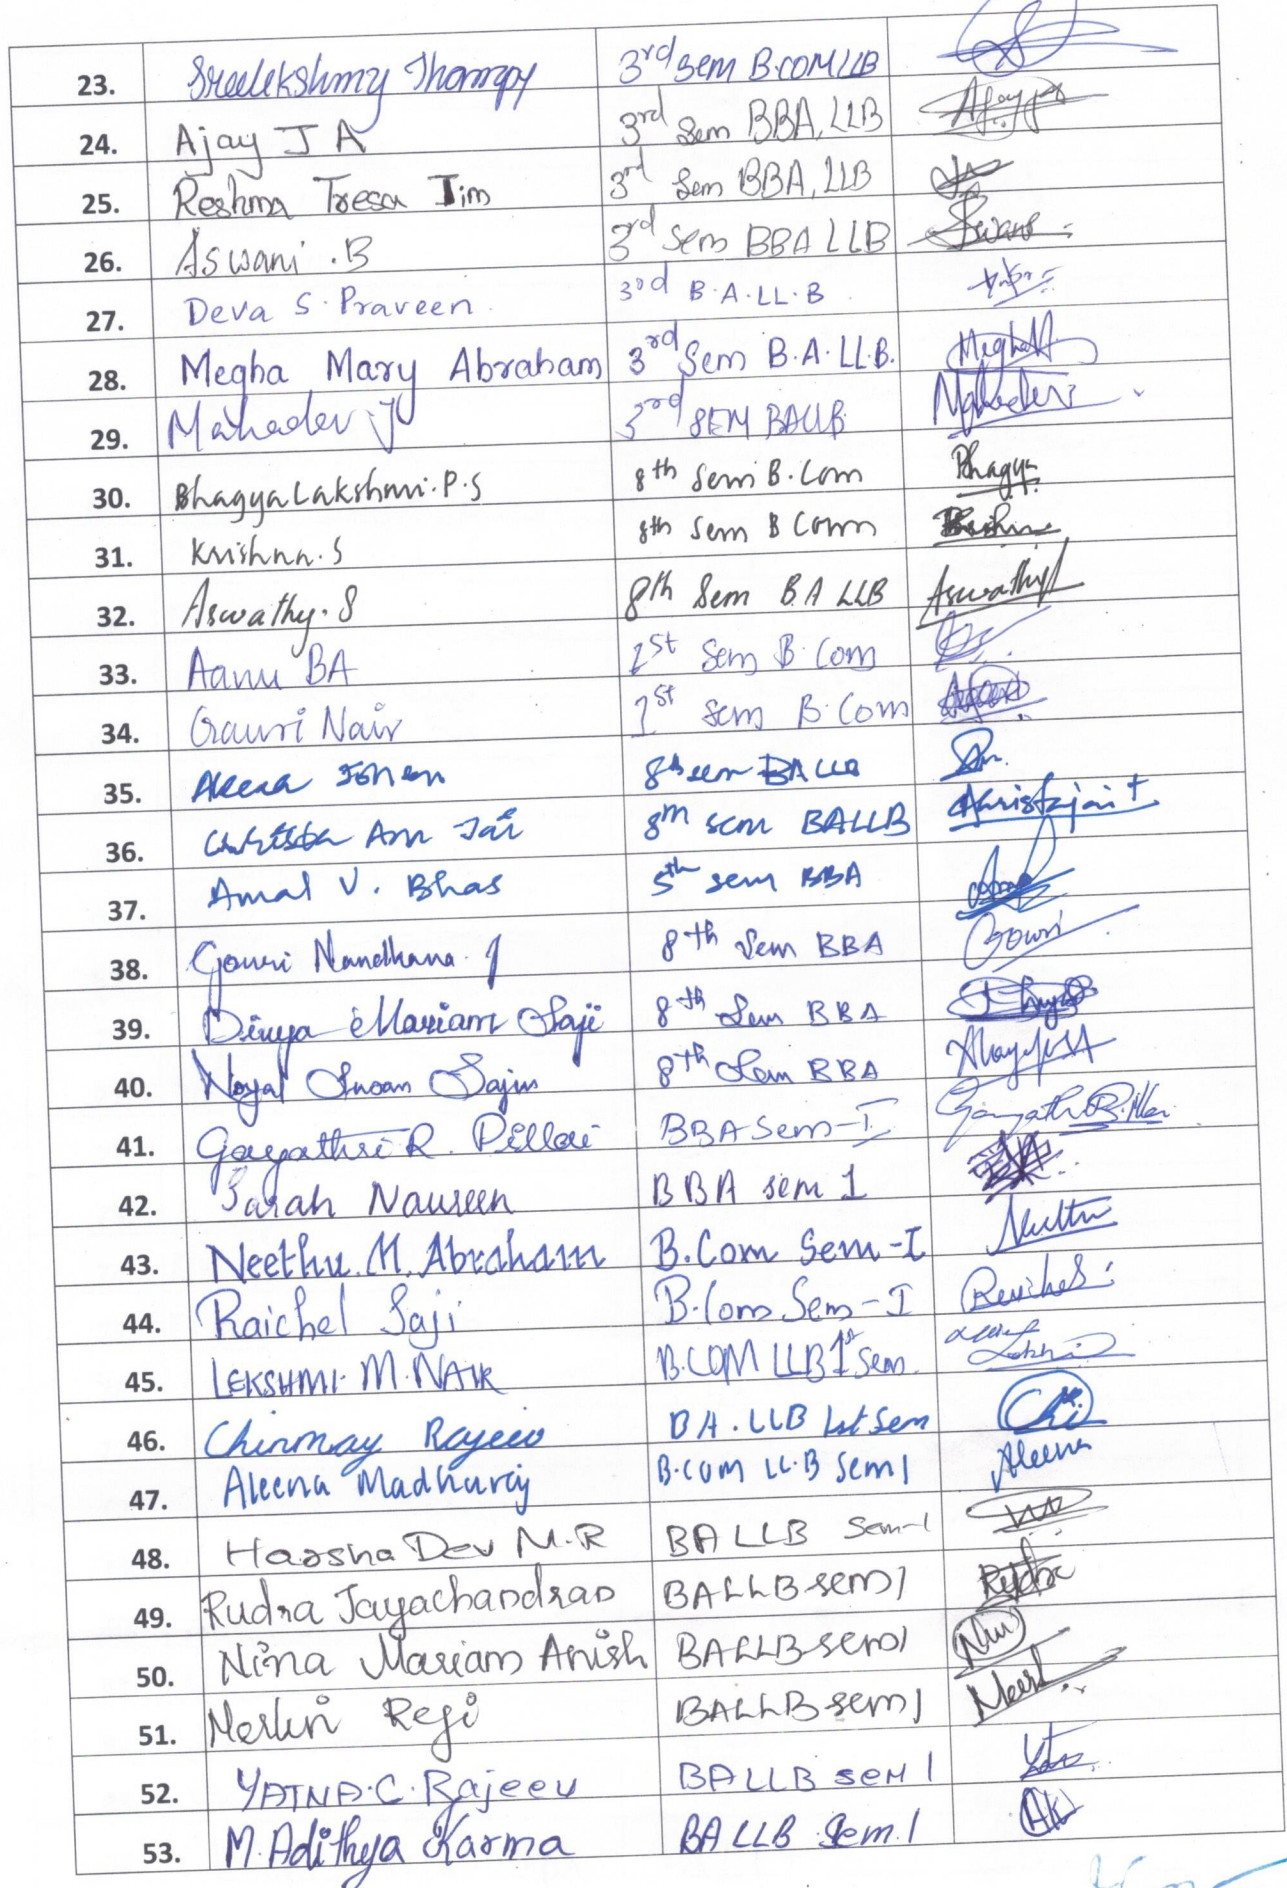 23. Sreelekshmy Thampy 3rd sem B.COM LLB
24. Ajay J A 3rd Sem BBA, LLB Ajay
25. Reshma Tresa Jim 3rd Sem BBA, LLB
26. Aswani .B 3rd sem BBA LLB
27. Deva S. Praveen 3rd B.A.LL.B
28. Megha Mary Abraham 3rd Sem B.A.LL.B. MeghaM
29. Mahadev J 3rd SEM BALLB Mahadev
30. BhagyaLakshmi.P.S 8th Semi B.Com Bhagya
31. Krishna.S 8th Sem B Com
32. Aswathy.S 8th Sem BA LLB Aswathy
33. Aanu BA 1st Sem B.Com
34. Gauri Nair 1st sem B.Com
35. 8th sem BALLB
36. Ann 8th sem BALLB
37. Amal V. Bhas 5th sem BBA
38. Gowri Nandhana. J 8th Sem BBA Gowri
39. Divya Mariam Saji 8th Sem BBA
40. Noyal Susan Sajin 8th Sem BBA
41. Gayathri R. Pillai BBA Sem-I Gayathri R.Pillai
42. Sarah Naureen BBA sem 1
43. Neethu.M.Abraham B.Com Sem-I Neethu
44. Raichel Saji B.Com Sem-I Raichel
45. LEKSHMI. M.NAIR B.COM LLB 1st Sem.
46. Chinmay Rajeev BA.LLB 1st Sem Chi
47. Aleena Madhuraj B.COM LL.B Sem1 Aleena
48. Harsha Dev M.R BALLB Sem-1
49. Rudra Jayachandran BALLB sem1 Rudra
50. Nina Mariam Anish BALLB sem1
51. Merlin Regi BALLB sem1
52. YATNA.C.Rajeev BALLB SEM 1
53. M.Adithya Karma BALLB Sem.1 AK